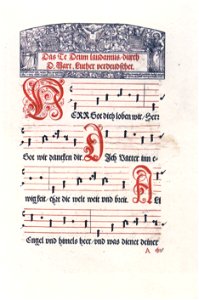 Das Te Deum laudamus/ durch
D. Mart. Luther verdeudschet.
HERR Got dich loben wir/ Herr
Got wir dancken dir. DJch Vatter inn e-
wigkeit/ ehrt die welt weit und breit. All
Engel und himels heer/ und was dienet deiner
A